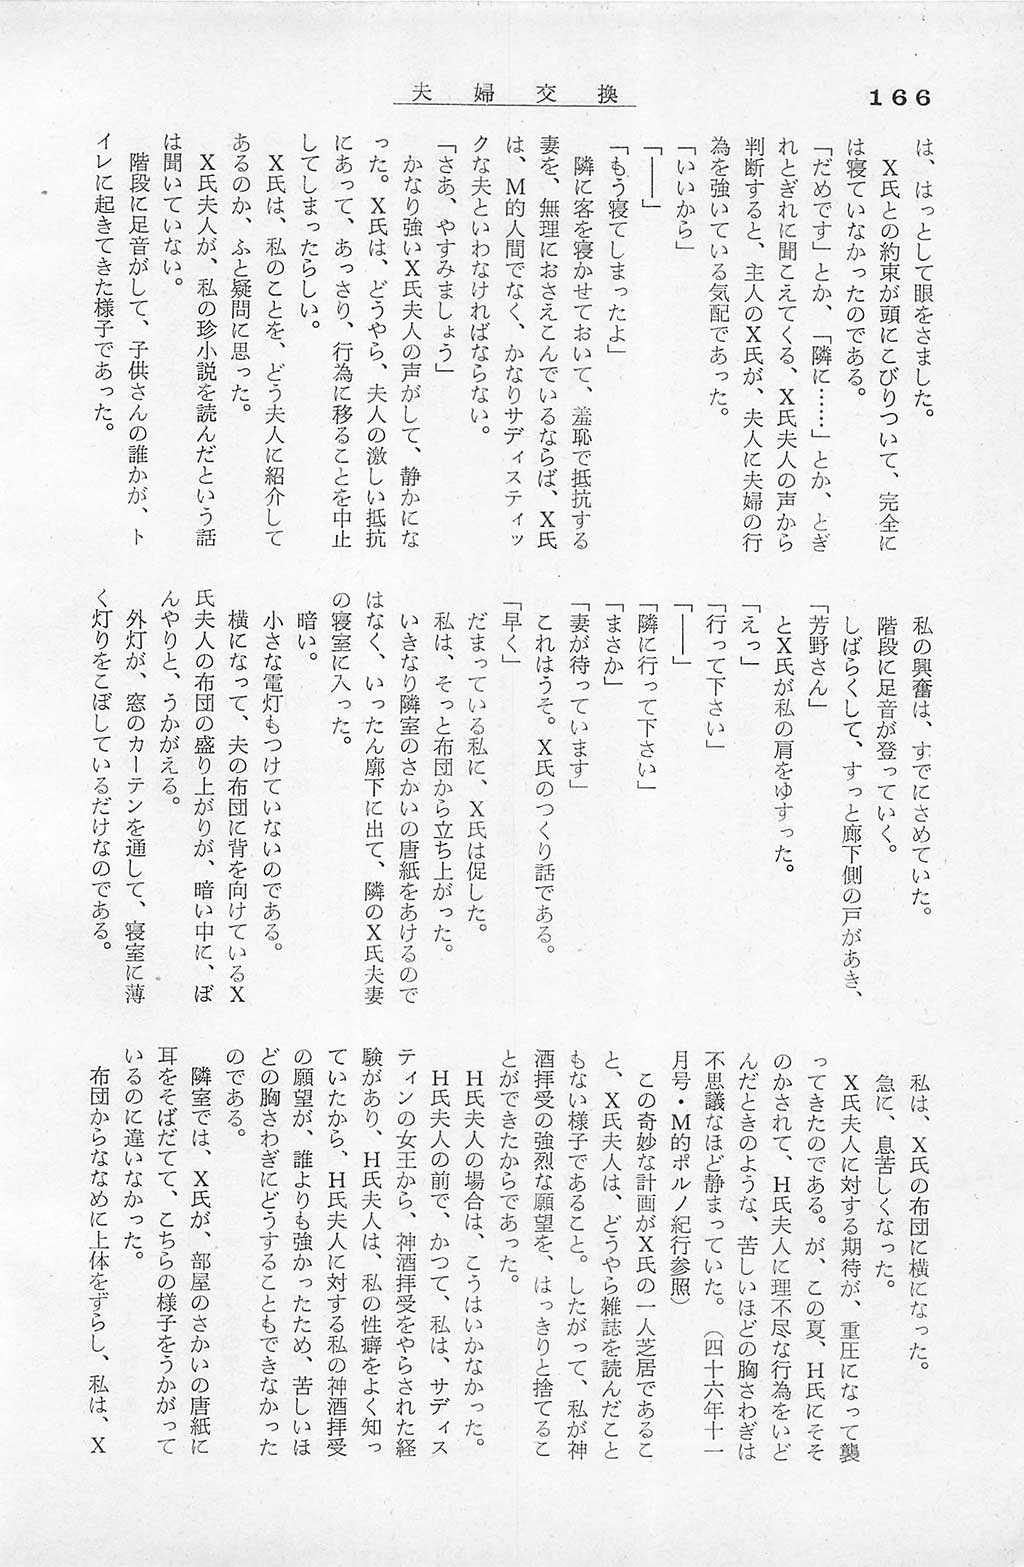 166
夫婦交換
は、はっとして眼をさました。
X氏との約束が頭にこびりついて、完全に
は寝ていなかったのである。
「だめです」とか、「隣に……」とか、とぎ
れとぎれに聞こえてくる、X氏夫人の声から
判断すると、主人のX氏が、夫人に夫婦の行
為を強いている気配であった。
「いいから」
「――」
「もう寝てしまったよ」
隣に客を寝かせておいて、羞恥で抵抗する
妻を、無理におさえこんでいるならば、X氏
は、M的人間でなく、かなりサディスティッ
クな夫といわなければならない。
「さあ、やすみましょう」
かなり強いX氏夫人の声がして、静かにな
った。X氏は、どうやら、夫人の激しい抵抗
にあって、あっさり、行為に移ることを中止
してしまったらしい。
X氏は、私のことを、どう夫人に紹介して
あるのか、ふと疑問に思った。
X氏夫人が、私の珍小説を読んだという話
は聞いていない。
階段に足音がして、子供さんの誰かが、ト
イレに起きてきた様子であった。
私の興奮は、すでにさめていた。
階段に足音が登っていく。
しばらくして、すっと廊下側の戸があき、
「芳野さん」
とX氏が私の肩をゆすった。
「えっ」
「行って下さい」
「――」
「隣に行って下さい」
「まさか」
「妻が待っています」
これはうそ。X氏のつくり話である。
「早く」
だまっている私に、X氏は促した。
私は、そっと布団から立ち上がった。
いきなり隣室のさかいの唐紙をあけるので
はなく、いったん廊下に出て、隣のX氏夫妻
の寝室に入った。
暗い。
小さな電灯もつけていないのである。
横になって、夫の布団に背を向けているX
氏夫人の布団の盛り上がりが、暗い中に、ぼ
んやりと、うかがえる。
外灯が、窓のカーテンを通して、寝室に薄
く灯りをこぼしているだけなのである。
私は、X氏の布団に横になった。
急に、息苦しくなった。
X氏夫人に対する期待が、重圧になって襲
ってきたのである。が、この夏、H氏にそそ
のかされて、H氏夫人に理不尽な行為をいど
んだときのような、苦しいほどの胸さわぎは
不思議なほど静まっていた。（四十六年十一
月号・M的ポルノ紀行参照）
この奇妙な計画がX氏の一人芝居であるこ
と、X氏夫人は、どうやら雑誌を読んだこと
もない様子であること。したがって、私が神
酒拝受の強烈な願望を、はっきりと捨てるこ
とができたからであった。
H氏夫人の場合は、こうはいかなかった。
H氏夫人の前で、かつて、私は、サディス
ティンの女王から、神酒拝受をやらされた経
験があり、H氏夫人は、私の性癖をよく知っ
ていたから、H氏夫人に対する私の神酒拝受
の願望が、誰よりも強かったため、苦しいほ
どの胸さわぎにどうすることもできなかった
のである。
隣室では、X氏が、部屋のさかいの唐紙に
耳をそばだてて、こちらの様子をうかがって
いるのに違いなかった。
布団からななめに上体をずらし、私は、X